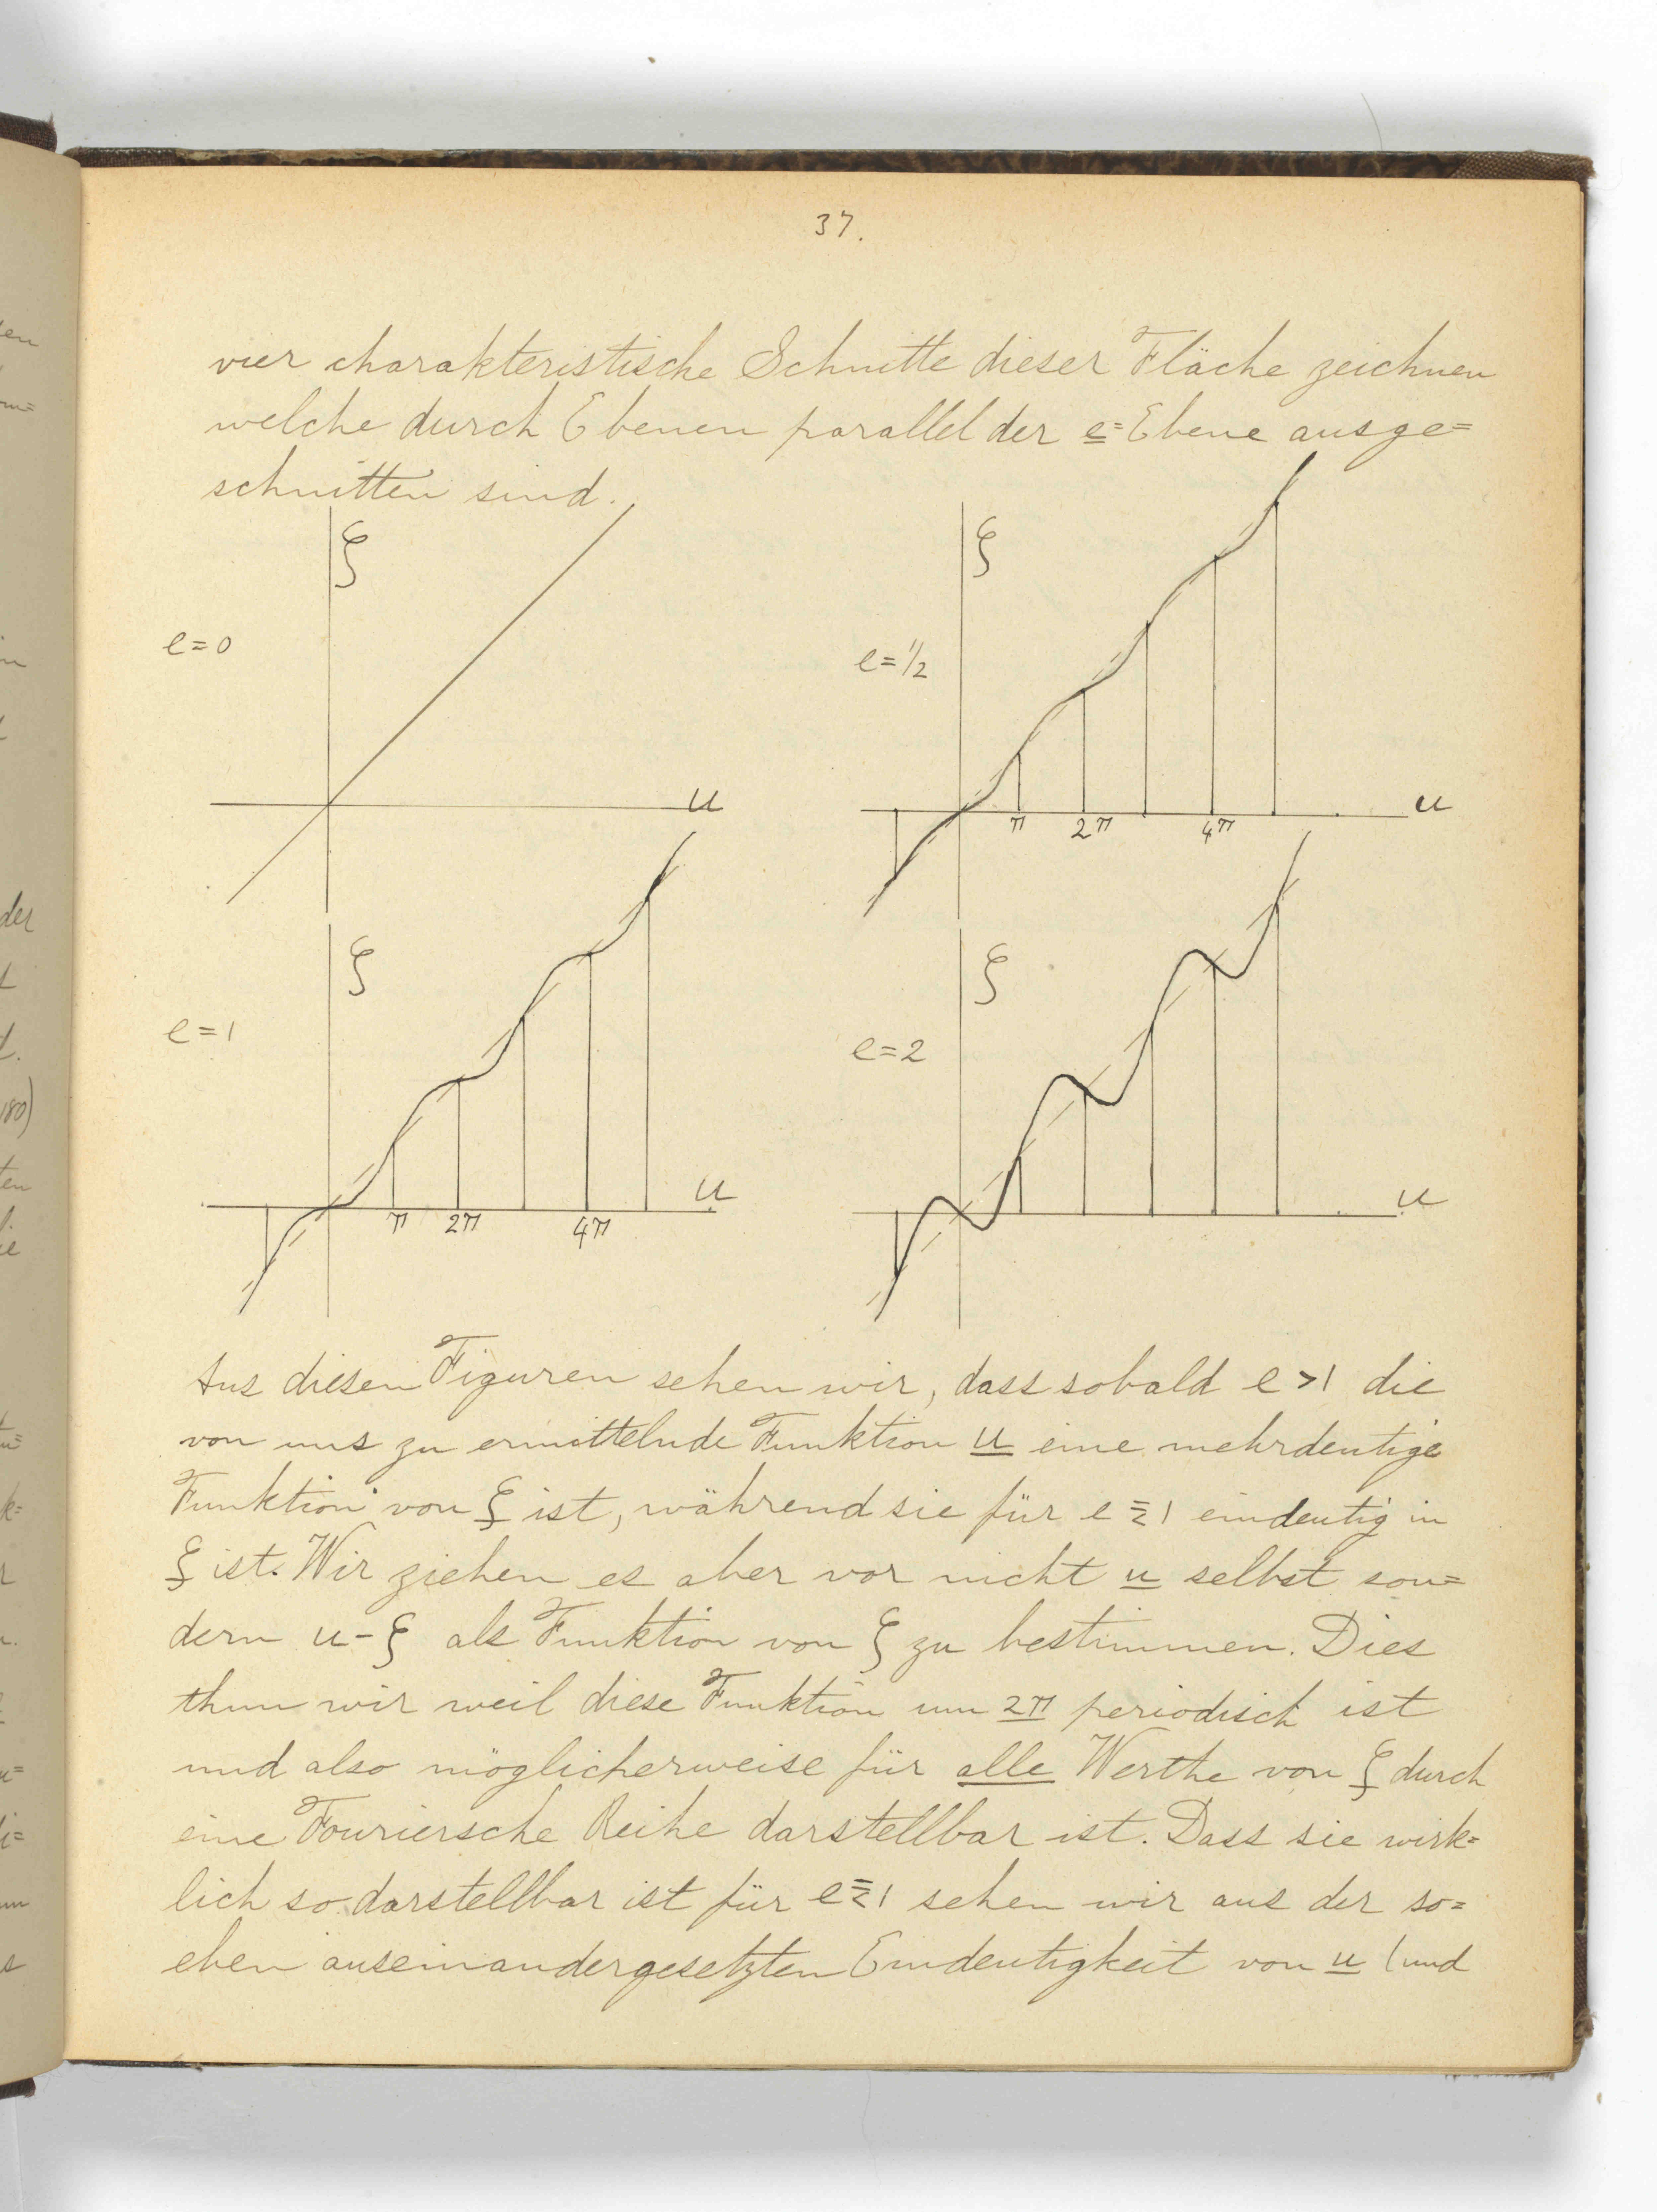 37.
vier charakteristische Schnitte dieser Fläche zeichnen
welche durch Ebenen parallel der e=Ebene ausge=
schnitten sind.
ζ
e=0
u
ζ
e=1/2
u
π 2π 4π
ζ
e=1
u
π 2π 4π
ζ
e=2
u
Aus diesen Figuren sehen wir, dass sobald e>1 die
von uns zu ermittelnde Funktion u eine mehrdeutige
Funktion von ζ ist, während sie für e ≦ 1 eindeutig in
ζ ist. Wir ziehen es aber vor nicht u selbst son=
dern u-ζ als Funktion von ζ zu bestimmen. Dies
thun wir weil diese Funktion um 2π periodisch ist
und also möglicherweise für alle Werthe von ζ durch
eine Fouriersche Reihe darstellbar ist. Dass sie wirk=
lich so darstellbar ist für e≦1 sehen wir aus der so=
eben auseinandergesetzten Eindeutigkeit von u (und
der
180)